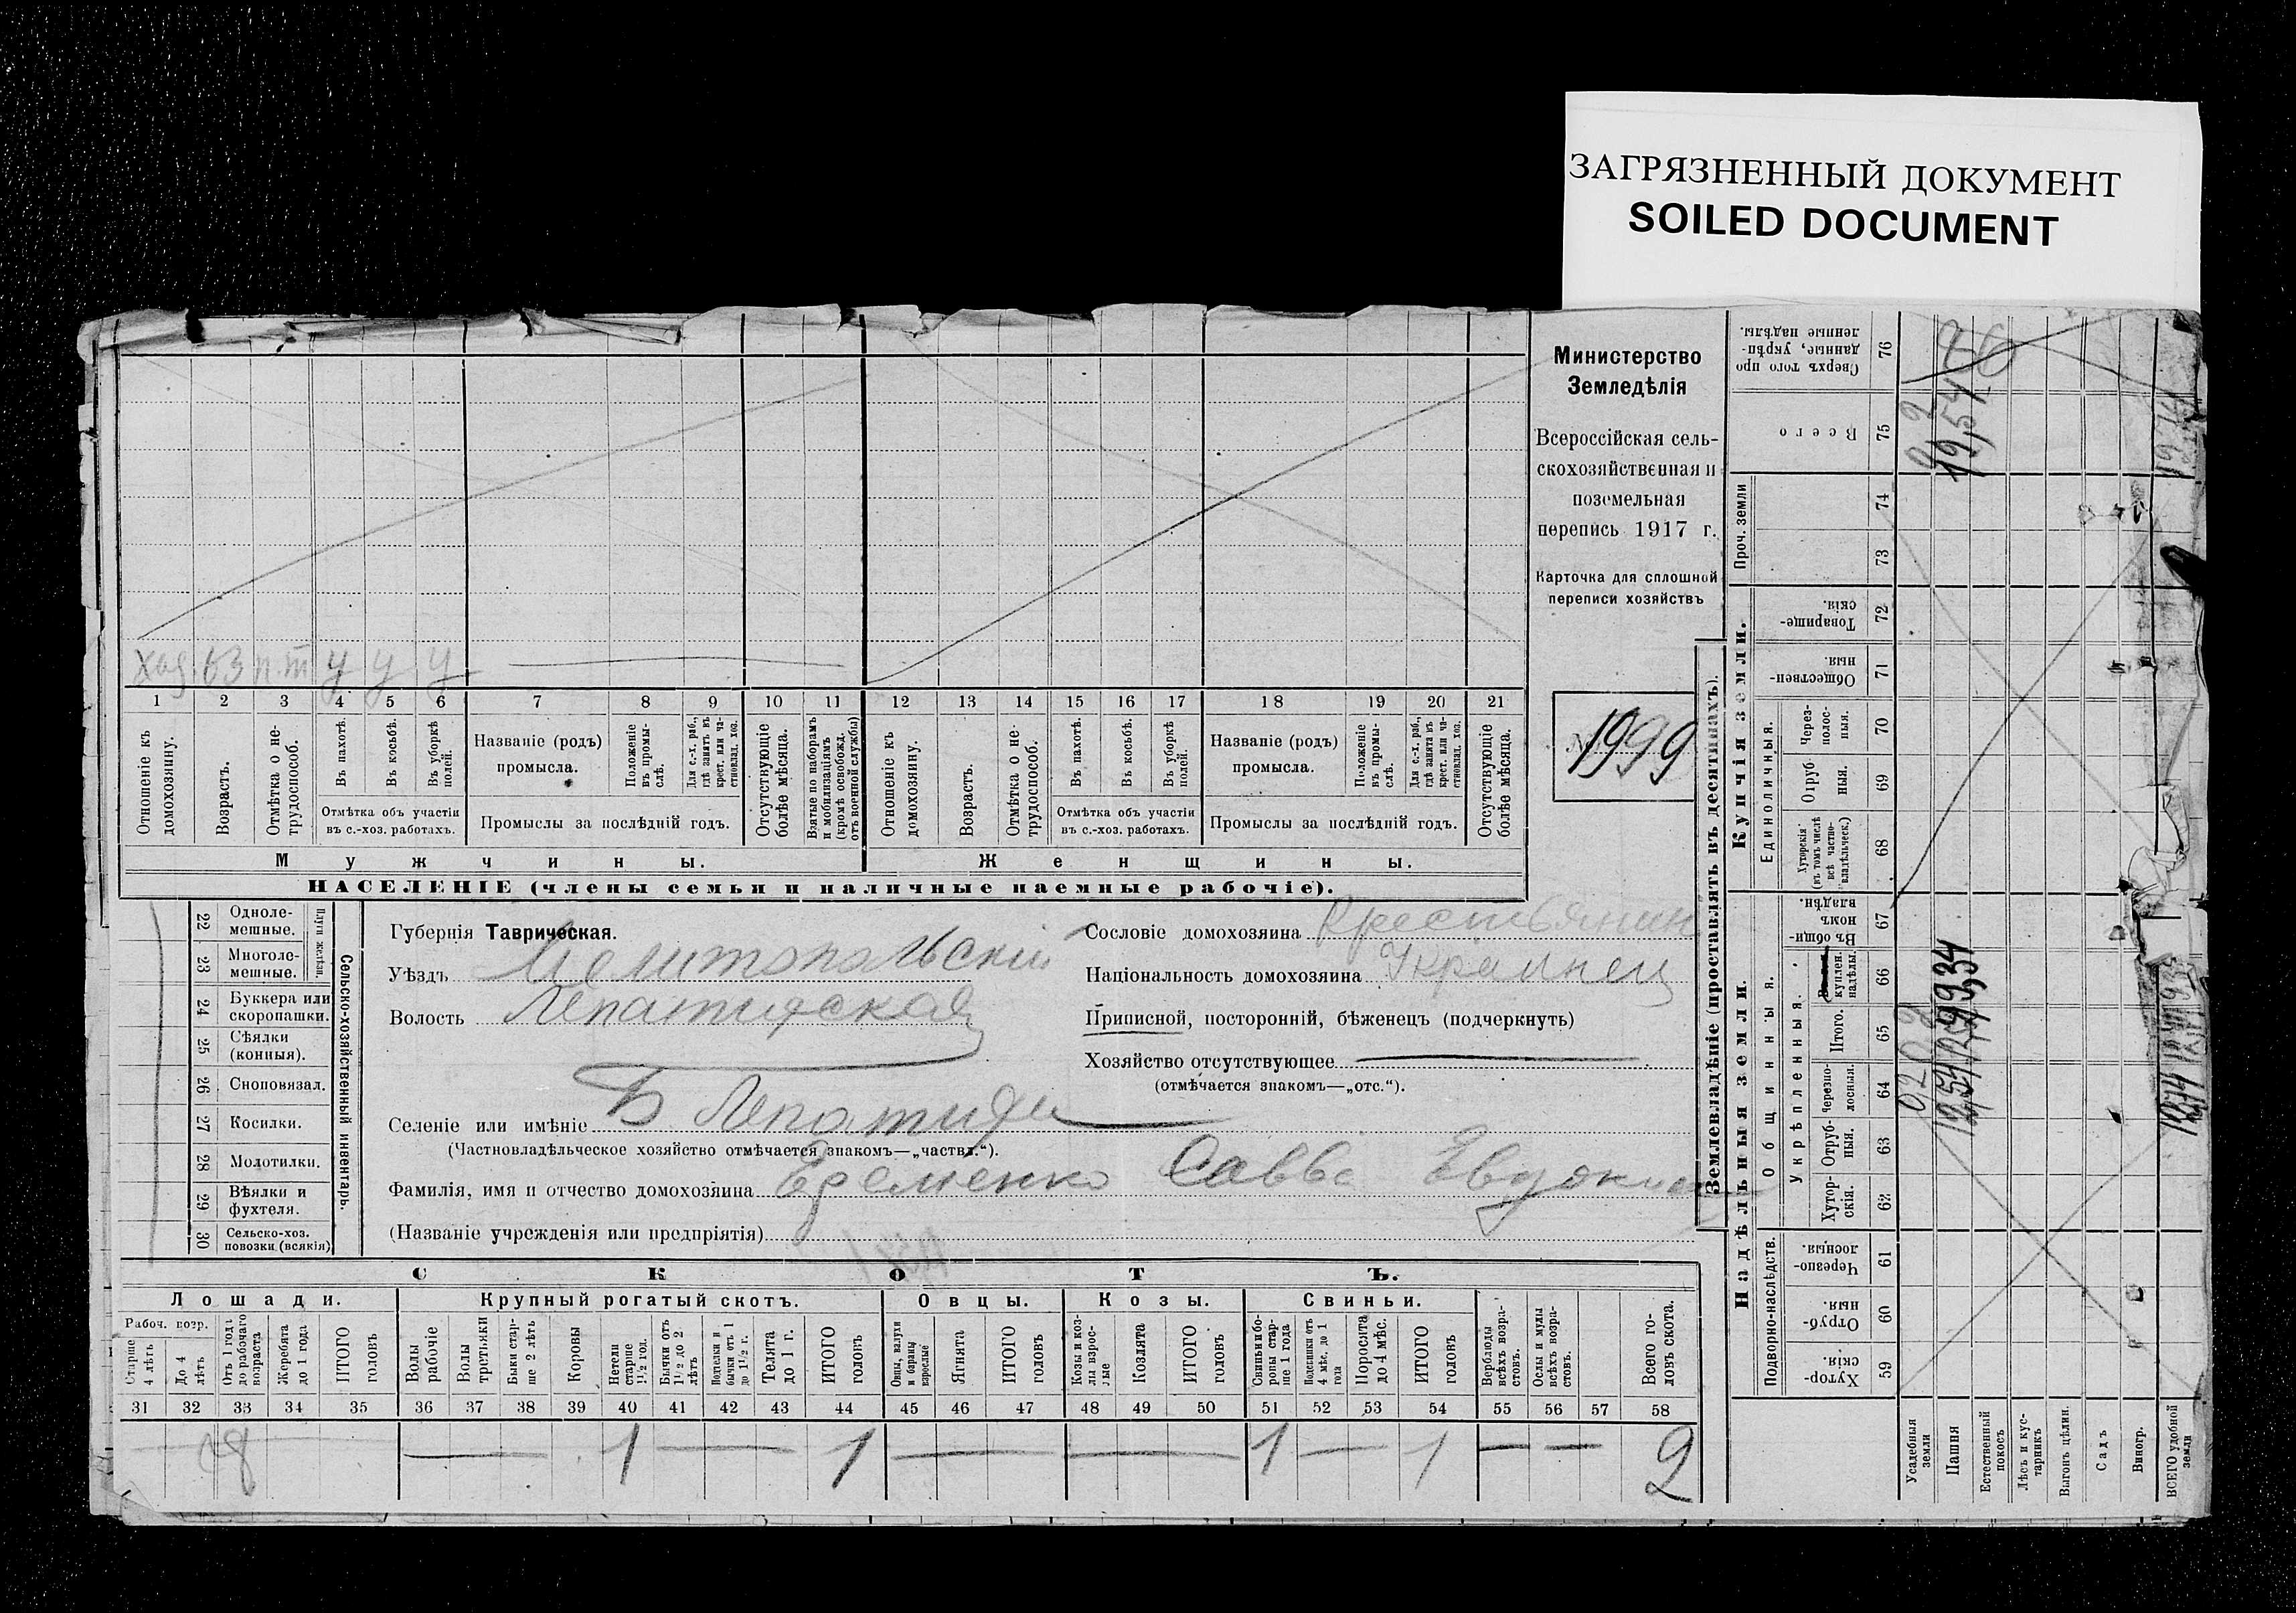 ЗАГРЯЗНЕННЫЙ ДОКУМЕНТ
SOILED DOCUMENT
Министерство
Земледѣлія
Всероссійская сель-
скохозяйственная и
поземельная
перепись 1917 г.
Карточка для сплошной
переписи хозяйствъ
№ 1999
63 н.т у у у
1 2 3 4 5 6 7 8 9 10 11 12 13 14 15 16 17 18 19 20 21
Отношеніе къ домохозяину.
Возрастъ.
Отмѣтка о не-трудоспособ.
Въ пахотѣ.
Въ косьбѣ.
Въ уборкѣ полей.
Отмѣтка объ участіи
въ с.-хоз. работахъ.
Названіе (родъ)
промысла.
Положеніе въ промы-слѣ.
Для с.-х. раб., гдѣ занятъ въ крест. или ча-стновлад. хоз.
Промыслы за послѣдній годъ.
Отсутствующіе болѣе мѣсяца.
Взятые по наборамъ и мобилизаціямъ (кромѣ освобожд. отъ военной службы)
Отношеніе къ домохозяину.
Возрастъ.
Отмѣтка о не-трудоспособ.
Въ пахотѣ.
Въ косьбѣ.
Въ уборкѣ полей.
Отмѣтка объ участіи
въ с.-хоз. работахъ.
Названіе (родъ)
промысла.
Положеніе въ промы-слѣ.
Для с.-х. раб., гдѣ занята въ крест. или ча-стновлад. хоз.
Промыслы за послѣдній годъ.
Отсутствующіе болѣе мѣсяца.
Мужчины.
Женщины.
НАСЕЛЕНІЕ (члены семьи и наличные наемные рабочіе).
22 Одноле-мешные.
23 Многоле-мешные.
Плуги желѣзн.
24 Буккера или скоропашки.
25 Сѣялки (конныя).
26 Сноповязал.
27 Косилки.
28 Молотилки.
29 Вѣялки и фухтеля.
30 Сельско-хоз. повозки (всякія)
Сельско-хозяйственный инвентарь.
Губернія Таврическая.
Уѣздъ Мелитопольскій
Волость Лепатихская
Селеніе или имѣніе Б Лепатиха
(Частновладѣльческое хозяйство отмѣчается знакомъ—„частвл.“).
Фамилія, имя и отчество домохозяина Еременко Савва Евдоким
(Названіе учрежденія или предпріятія)
Сословіе домохозяина Крестьянин
Національность домохозяина Украинец
Приписной, посторонній, бѣженецъ (подчеркнуть)
Хозяйство отсутствующее
(отмѣчается знакомъ—„отс.“).
СКОТЪ.
Лошади. Крупный рогатый скотъ. Овцы. Козы. Свиньи.
Рабоч. возр.
Старше 4 лѣтъ
До 4 лѣтъ
Отъ 1 года до рабочаго возраста
Жеребята до 1 года
ИТОГО головъ
Волы рабочіе
Волы третьяки
Быки стар-ше 2 лѣтъ
Коровы
Нетели старше 1½ год.
Бычки отъ 1½ до 2 лѣтъ
Подтелки и бычки отъ 1 до 1½ г.
Телята до 1 г.
ИТОГО головъ
Овцы, валухи и бараны взрослые
Ягнята
ИТОГО головъ
Козы и коз-лы взрос-лые
Козлята
ИТОГО головъ
Свиньи и бо-ровы стар-ше 1 года
Подсвинки отъ 4 мѣс. до 1 года
Поросята до 4 мѣс.
ИТОГО головъ
Верблюды всѣхъ возра-стовъ.
Ослы и мулы всѣхъ возра-стовъ.
Всего го-ловъ скота.
31 32 33 34 35 36 37 38 39 40 41 42 43 44 45 46 47 48 49 50 51 52 53 54 55 56 57 58
1 1 1 1 2
Землевладѣніе (проставлять въ десятинахъ).
Надѣльныя земли.
Купчія земли.
Подворно-наслѣдств.
Общинныя.
Укрѣпленныя.
Единоличныя.
Проч. земли
Хутор-скія. 59
Отруб-ныя. 60
Черезпо-лосныя. 61
Хутор-скія. 62
Отруб-ныя. 63
Черезпо-лосныя. 64
Итого. 65
куплен. надѣлы. 66
Въ общи-номъ владѣн. 67
Хуторскія (въ томъ числѣ всѣ частно-владѣльческ.) 68
Отруб-ныя. 69
Через-полос-ныя. 70
Обществен-ныя 71
Товарище-скія. 72
73
74
Всего 75
Сверхъ того про-данные, укрѣп-ленные надѣлы. 76
Усадебныя земли
Пашня
Естественный покосъ
Лѣсъ и кус-тарникъ
Выгонъ цѣлин.
Садъ
Виногр.
ВСЕГО удобной земли